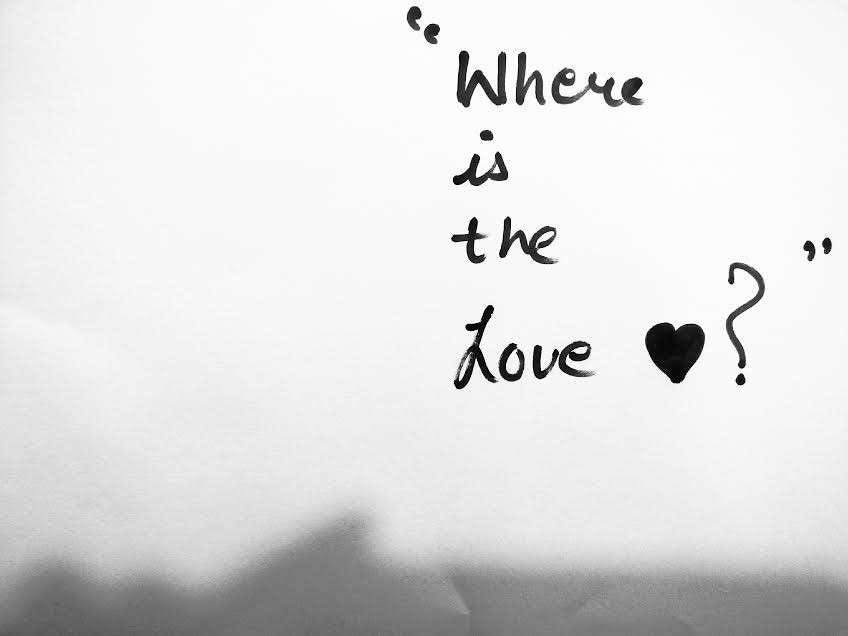 “Where
is
the
Love ♥?”